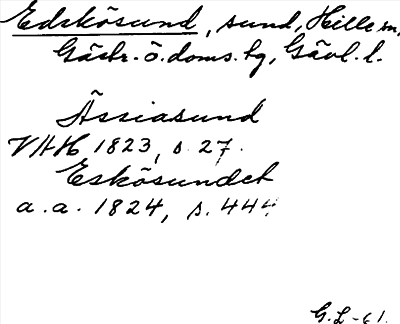 Edskösund, sund, Hille sn,
Gästr. ö. doms. hg, Gävl. l.
Ässiasund
VHH 1823, s. 27.
Eskösundet
a. a. 1824, s. 444
G. L -61.